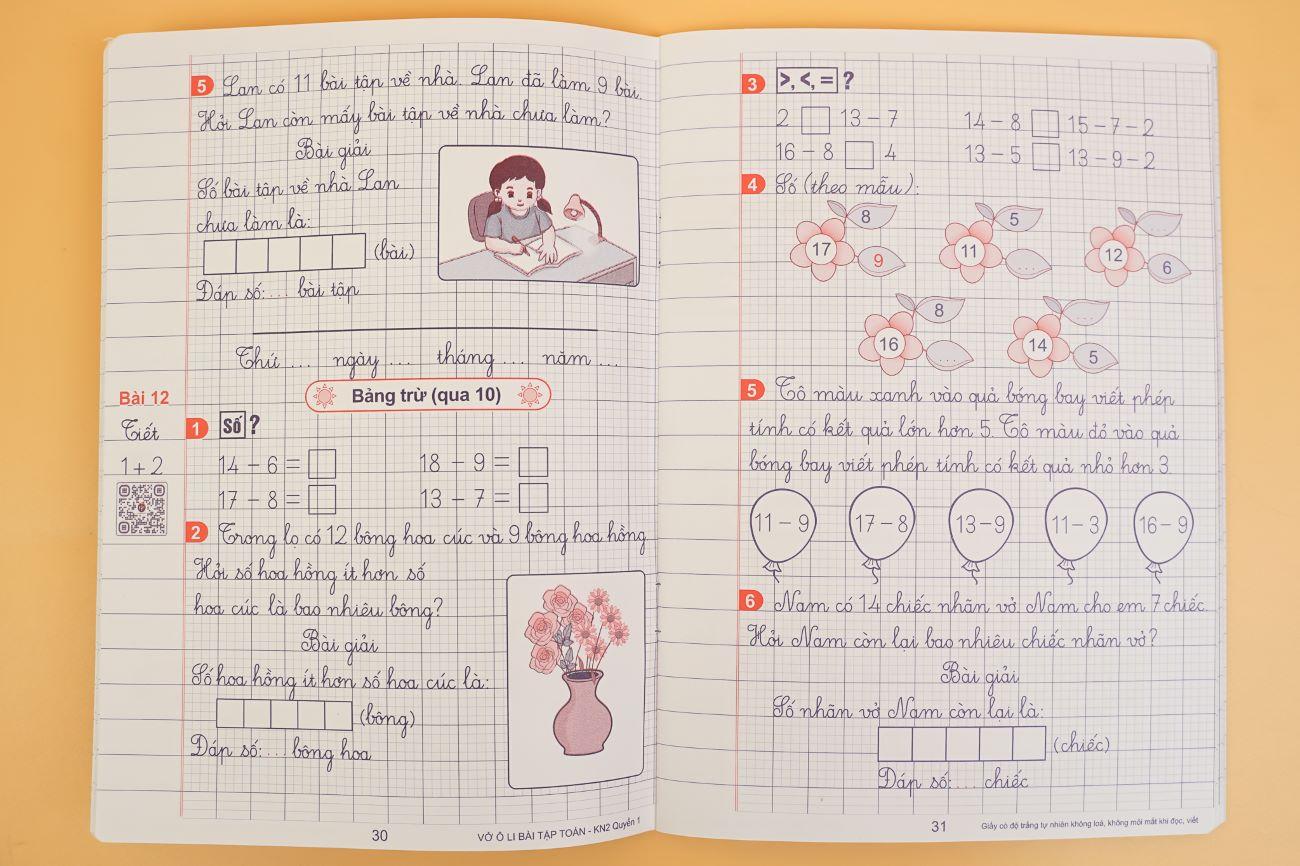 5 Lan có 11 bài tập về nhà. Lan đã làm 9 bài.
Hỏi Lan còn mấy bài tập về nhà chưa làm?
Bài giải
Số bài tập về nhà Lan
chưa làm là:
(bài)
Đáp số: ... bài tập
Thứ ... ngày ... tháng ... năm ...
Bài 12
Bảng trừ (qua 10)
Tiết
1 + 2
1 Số ?
14 – 6 = 18 – 9 =
17 – 8 = 13 – 7 =
2 Trong lọ có 12 bông hoa cúc và 9 bông hoa hồng.
Hỏi số hoa hồng ít hơn số
hoa cúc là bao nhiêu bông?
Bài giải
Số hoa hồng ít hơn số hoa cúc là:
(bông)
Đáp số: ... bông hoa
30
VỞ Ô LI BÀI TẬP TOÁN - KN2 Quyển 1
3 >, <, = ?
2 13 – 7 14 – 8 15 – 7 – 2
16 – 8 4 13 – 5 13 – 9 – 2
4 Số (theo mẫu):
8 5 ...
17 11 12
9 ... 6
8 ...
16 14
... 5
5 Tô màu xanh vào quả bóng bay viết phép
tính có kết quả lớn hơn 5. Tô màu đỏ vào quả
bóng bay viết phép tính có kết quả nhỏ hơn 3.
11 – 9 17 – 8 13 – 9 11 – 3 16 – 9
6 Nam có 14 chiếc nhãn vở. Nam cho em 7 chiếc.
Hỏi Nam còn lại bao nhiêu chiếc nhãn vở?
Bài giải
Số nhãn vở Nam còn lại là:
(chiếc)
Đáp số: ... chiếc
31
Giấy có độ trắng tự nhiên không loá, không mỏi mắt khi đọc, viết